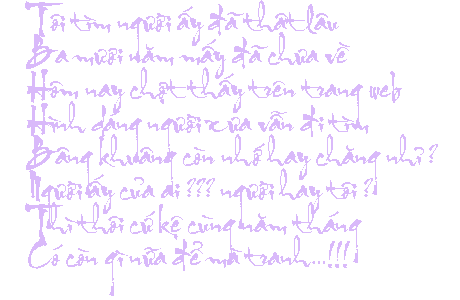 Tôi tìm người ấy đã thật lâu
Ba mươi năm mấy đã chưa về
Hôm nay chợt thấy trên trang web
Hình dáng người xưa vẫn đi tìm
Bâng khuâng còn nhớ hay chăng nhỉ ?
Người ấy của ai ??? người hay tôi ?
Thì thôi cứ kệ cùng năm tháng
Có còn gì nữa để mà tranh...!!!